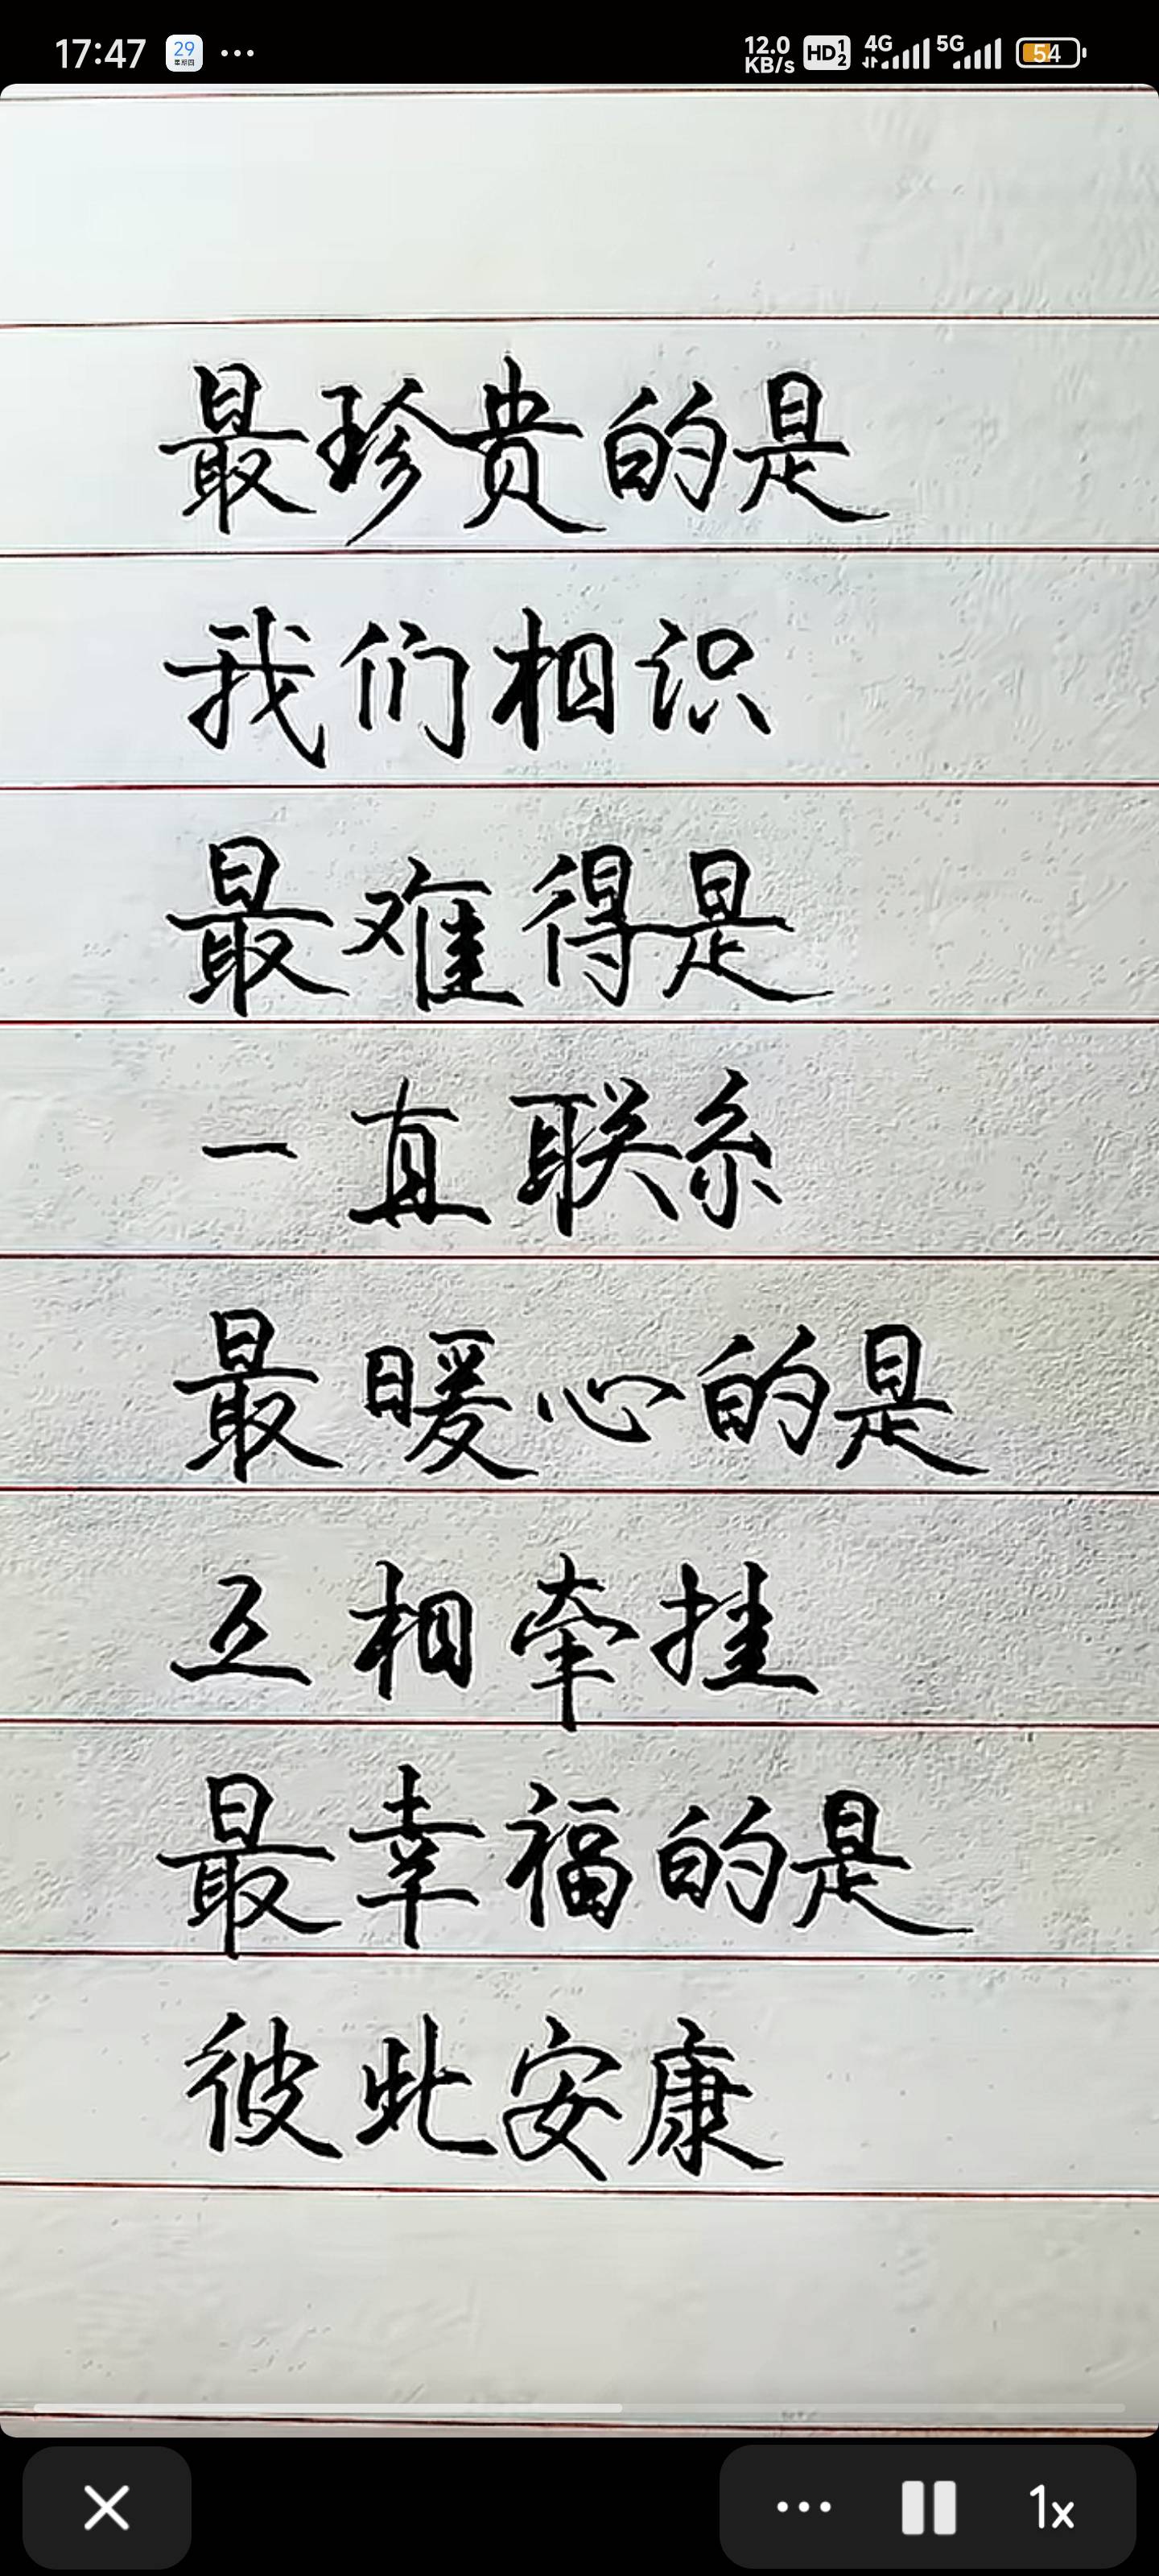 17:47 29 星期四 ...
12.0 KB/s HD 1 2 4G 5G 54
最珍贵的是
我们相识
最难得是
一直联系
最暖心的是
互相牵挂
最幸福的是
彼此安康
1x